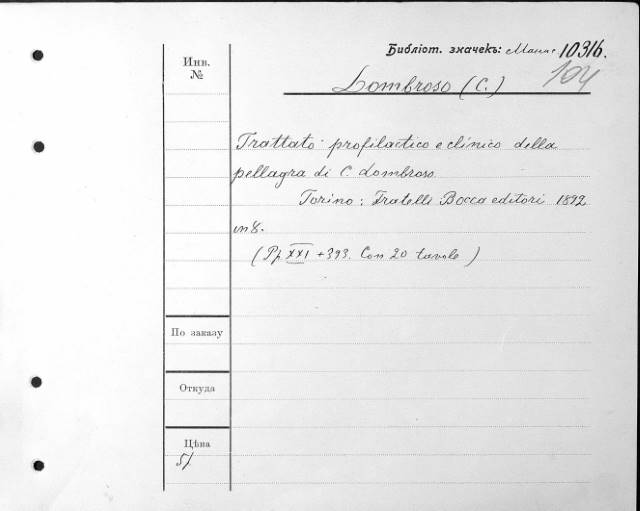 Библіот. значекъ: 10316.
104
Инв.
№
Lombroso (C.)
Trattato profilactico e clinico della
pellagra di C. Lombroso
Torino: Fratelli Bocca editori 1892
in 8.
(Pp XXI + 393. Con 20 tavole)
По заказу
Откуда
Цѣна
5/.